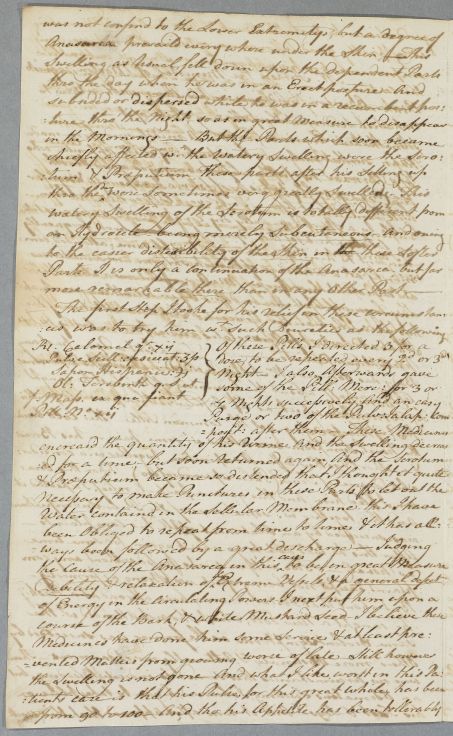 was not confin'd to the Lower Extremitys but a degree of
Anasarca prevail'd every where under the Skin — This
Swelling as Usual fell down upon the dependent Parts
thro the day when he was in an Erect posture And
subsided or dispersed while he was in a recumbent pos:
ture thro the Night so as in great Measure to disappear
in the Mornings — But the Parts which soon became
chiefly affected wt. the Watery Swelling were the Scro:
tum & Preputium these parts after his Setting up
thro the day were sometimes very greatly Swelled. This
watery Swelling of the Scrotum is totally different from
an Hydrocele being merely Subcutaneous and owing
to the easier distensibility of the Skin in these Softer
Parts It is only a continuation of the Anasarca but far
more remarkable there than in any Other Part —
The first Step I took for his relief in these circumstan:
:ces was to try him wt. Such Diuretics as the following
Rx Calomel gr xij
Pulv: Scil:
Sapon Hispanic: Zj
Ol: Terebinth q: s: ut
f: Mass: ex qua fiant
Pill: No: xij
Of these Pills I directed 3 for a
Dose, to be repeated every 2d or 3d
Night. I also Afterwards gave
some of the Pill: Merc: for 3 or
4 Nights successively & then an easy
Purge or two of the Pulv: Jalap: Com
post: after them. These Medicines
encreas'd the quantity of his Urine And the Swelling decreas
:ed for a time but soon returned again And the Scrotum
& Preputium became so distended that I thought it quite
Necessary to make Punctures in these Parts to let out the
Water contained in the Cellular Membrane this I have
been Obliged to repeat from time to time & it has all:
ways been followed by a great discharge — Judging
the Cause of the Anasarca in this case to be in great Measure
Debility & relaxation of the Vessels & a general defect
of Energy in the Circulating Powers I next put him upon a
course of the Bark, & white Mustard Seed I believe these
Medicines have done him some Service & at least pre:
:vented Matters from growing worse of late Still however
the Swelling is not gone And what I like worst in this Pa:
:tients case is that his Pulse for this great while has been
from 90 to 100 And tho his Appetite has been tollerably